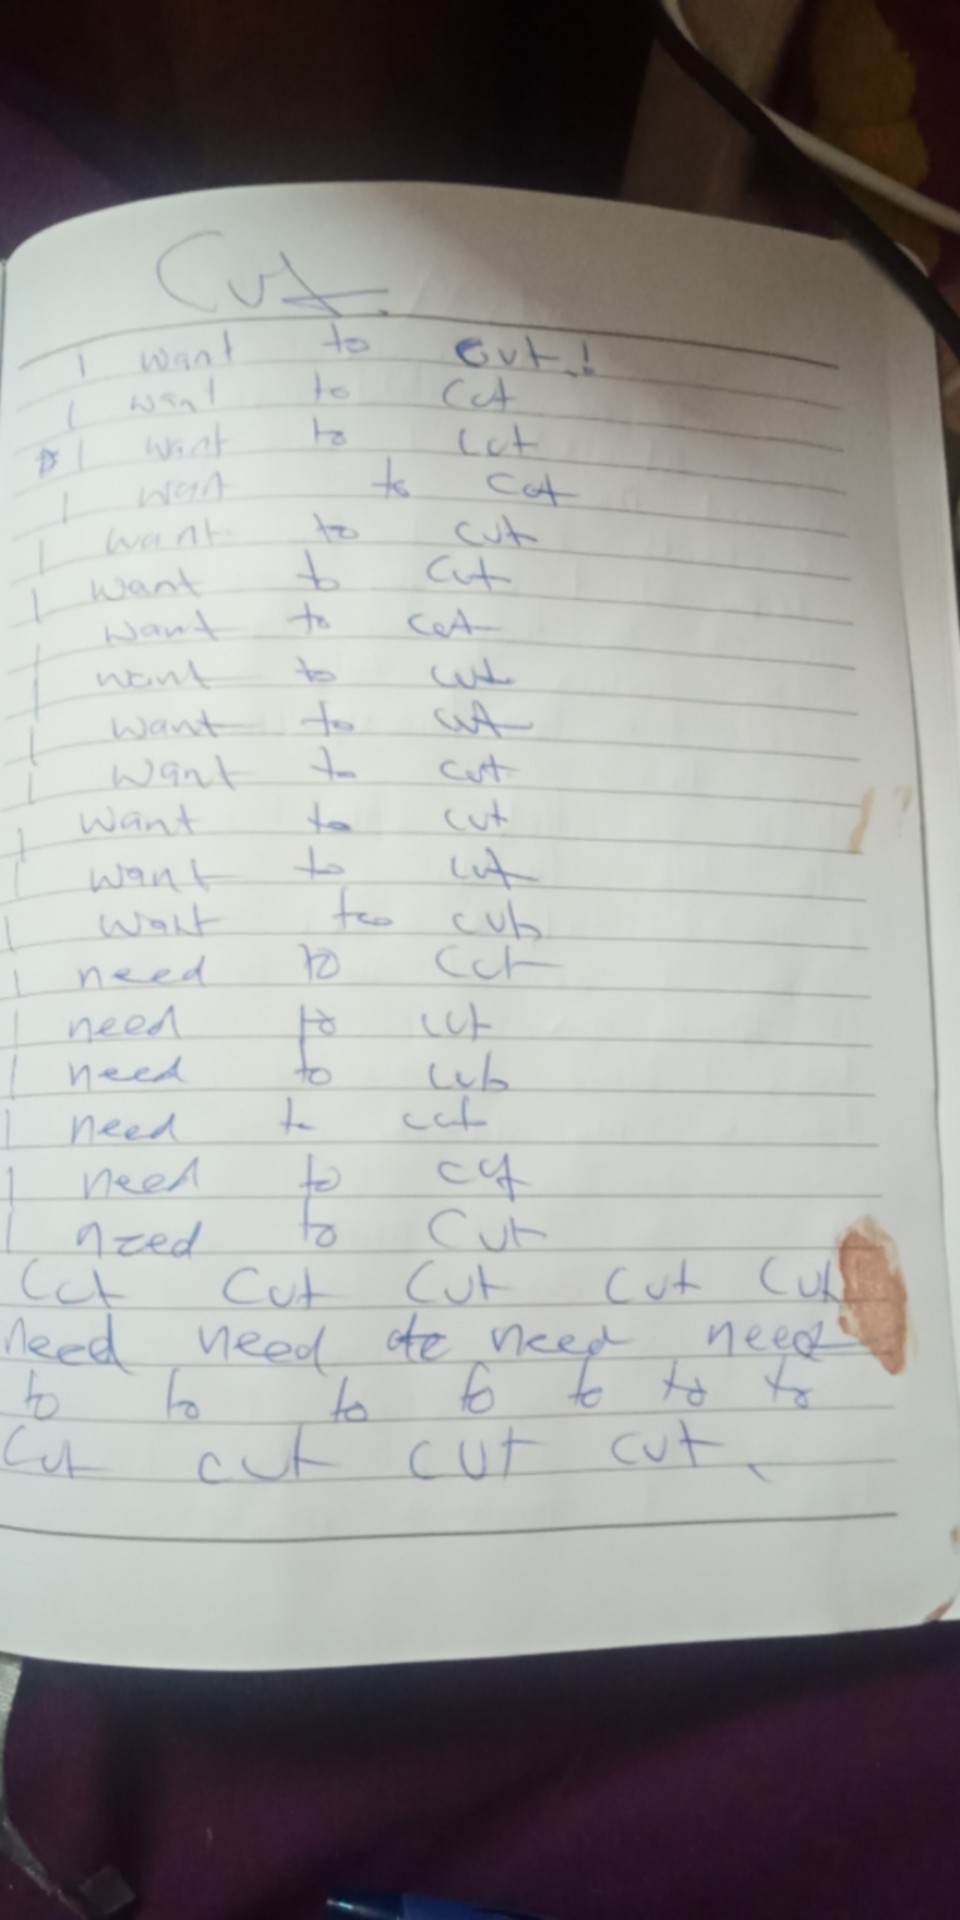 Cut.
I want to cut.!
I want to cut
I want to cut
I want to cut
I want to cut
I want to cut
want to cut
I want to cut
I want to cut
I want to cut
I want to cut
I want to cut
I want to cut
I need to cut
I need to cut
I need to cut
I need to cut
I need to cut
I need to cut
Cut Cut Cut Cut Cut
need need need need
to to to to to to to
Cut cut cut cut